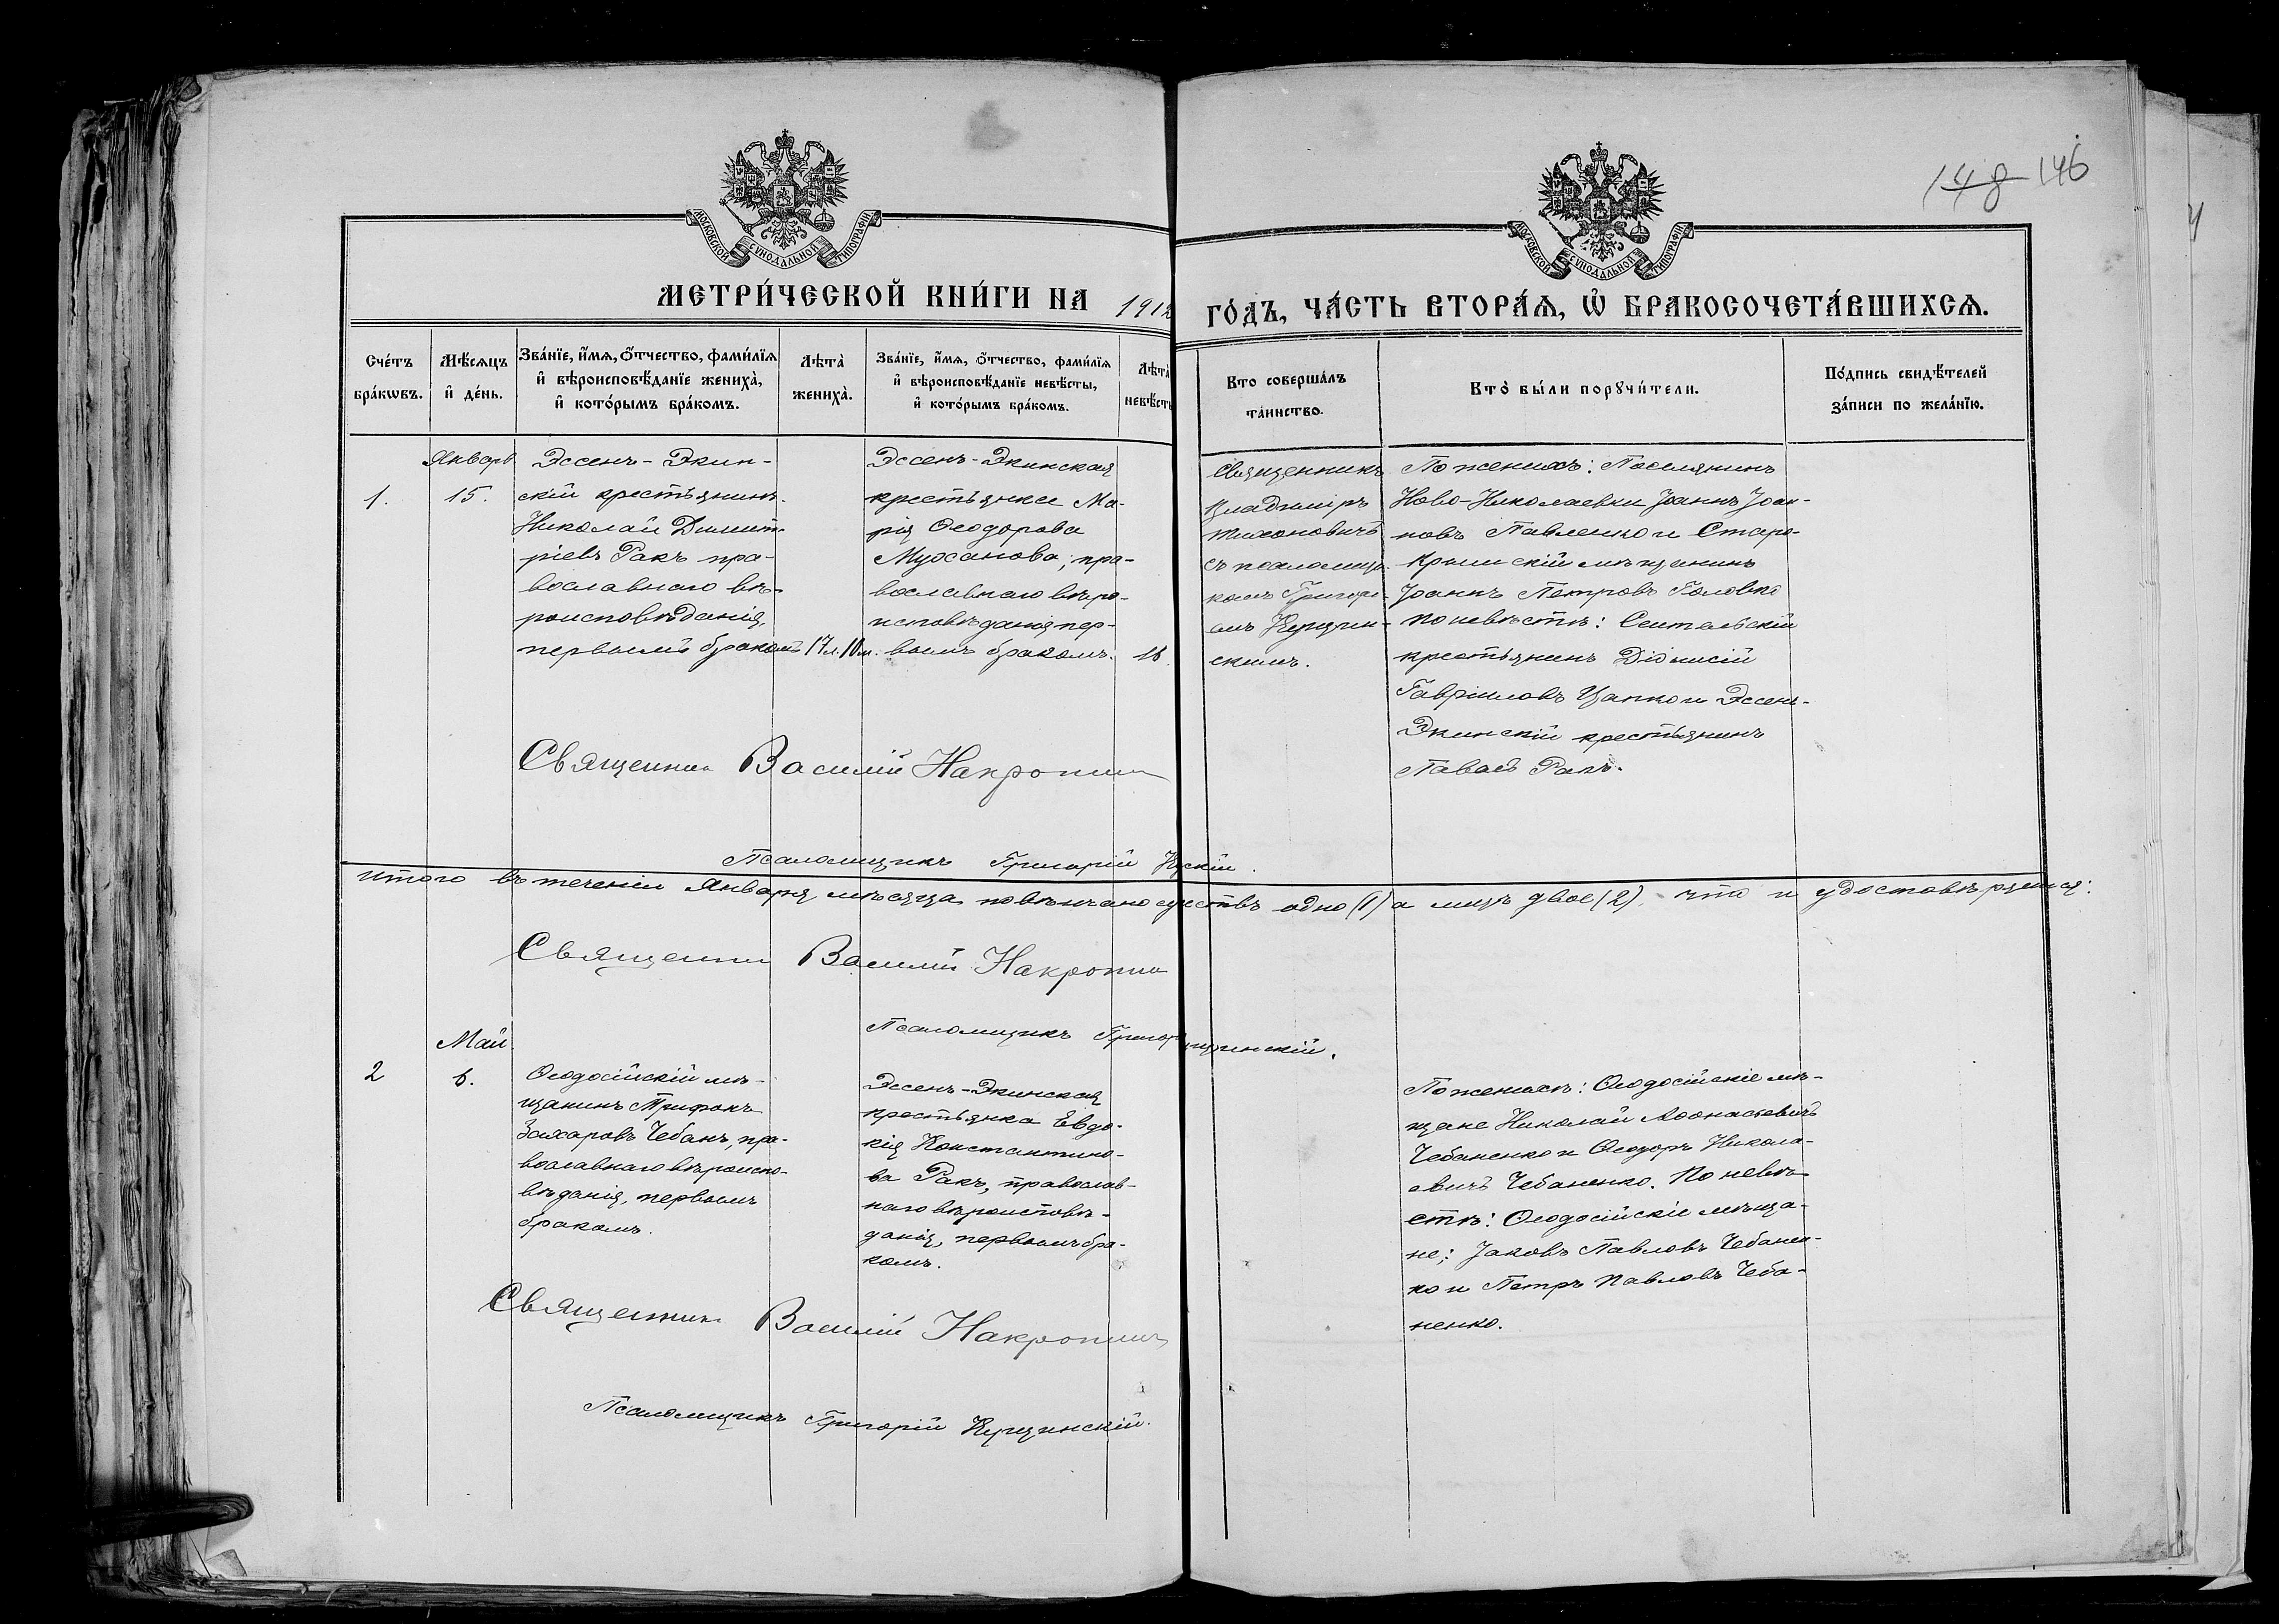 148 146
МОСКОВСКОЙ СѴНОДАЛЬНОЙ ТИПОГРАФІИ
МОСКОВСКОЙ СѴНОДАЛЬНОЙ ТИПОГРАФІИ
МЕТРИ́ЧЕСКОЙ КНИ́ГИ НА 1912
ГО́ДЪ, ЧА́СТЬ ВТОРА́Ѧ, Ѡ҆ БРАКОСОЧЕТА́ВШИХСѦ.
Сче́тъ бра́кѡвъ.
Мѣ́сяцъ и҆ де́нь.
Зва́нїе, и҆́мѧ, о҆́тчество, фами́лїѧ
и҆ вѣроисповѣ́данїе жениха̀,
и҆ кото́рымъ бра́комъ.
Лѣта̀ жениха̀.
Зва́нїе, и҆́мѧ, о҆́тчество, фами́лїѧ
и҆ вѣроисповѣ́данїе невѣ́сты,
и҆ кото́рымъ бра́комъ.
Лѣта̀
невѣ́сты
Кто соверша́лъ
та́инство.
Кто̀ бы́ли порꙋчи́тели.
По́дпись свидѣ́телей
за́писи по жела́нїю.
1.
Январь
15.
Эссенъ-Экин-
скій крестьянинъ
Николай Димит
ріевъ Ракъ пра-
вославнаго вѣ-
роисповѣданія,
первымъ бракомъ
17 л. 10 м.
Эссенъ-Экинская
крестьянка Ма-
рія Ѳеодорова
Муссанова, пра-
вославнаго вѣро-
исповѣданія пер-
вымъ бракомъ.
16.
Священникъ
Владиміръ
Тихоновичъ
съ псаломщи-
комъ Григорі-
емъ Кущин-
скимъ.
По женихѣ: Поселянинъ
Ново-Николаевки Іоаннъ Іоан-
новъ Павленко и Старо-
Крымскій мѣщанинъ
Іоаннъ Петровъ Головко
по невѣстѣ: Сеитлерскій
крестьянинъ Діонисій
Гавріиловъ Цапко и Эссенъ-
Экинскій крестьянинъ
Павелъ Ракъ.
Священник Василій Накропин
Псаломщикъ Григорій
Итого въ теченіи Января мѣсяца повѣнчано одно (1) а лицъ двое (2), что и удостовѣряемъ:
Священник Василій Накропин
Псаломщикъ Григор
2
Май.
6.
Ѳеодосійскій мѣ-
щанинъ Трифонъ
Захаровъ Чебанъ, пра-
вославнаго вѣроиспо-
вѣданія, первымъ
бракомъ.
Эссенъ-Экинская
крестьянка Евдо-
кія Константино-
ва Ракъ, православ-
наго вѣроисповѣ-
данія, первымъ бра-
комъ.
По женихѣ: Ѳеодосійскіе мѣ-
щане Николай Аѳонасіевичъ
Чебаненко и Ѳеодоръ Никола-
евичъ Чебаненко. По невѣ-
стѣ: Ѳеодосійскіе мѣща-
не: Іаковъ Павловъ Чебанен-
ко и Петръ Павловъ Чеба-
ненко.
Священник Василій Накропинъ
Псаломщикъ Григорій Кущинскій.